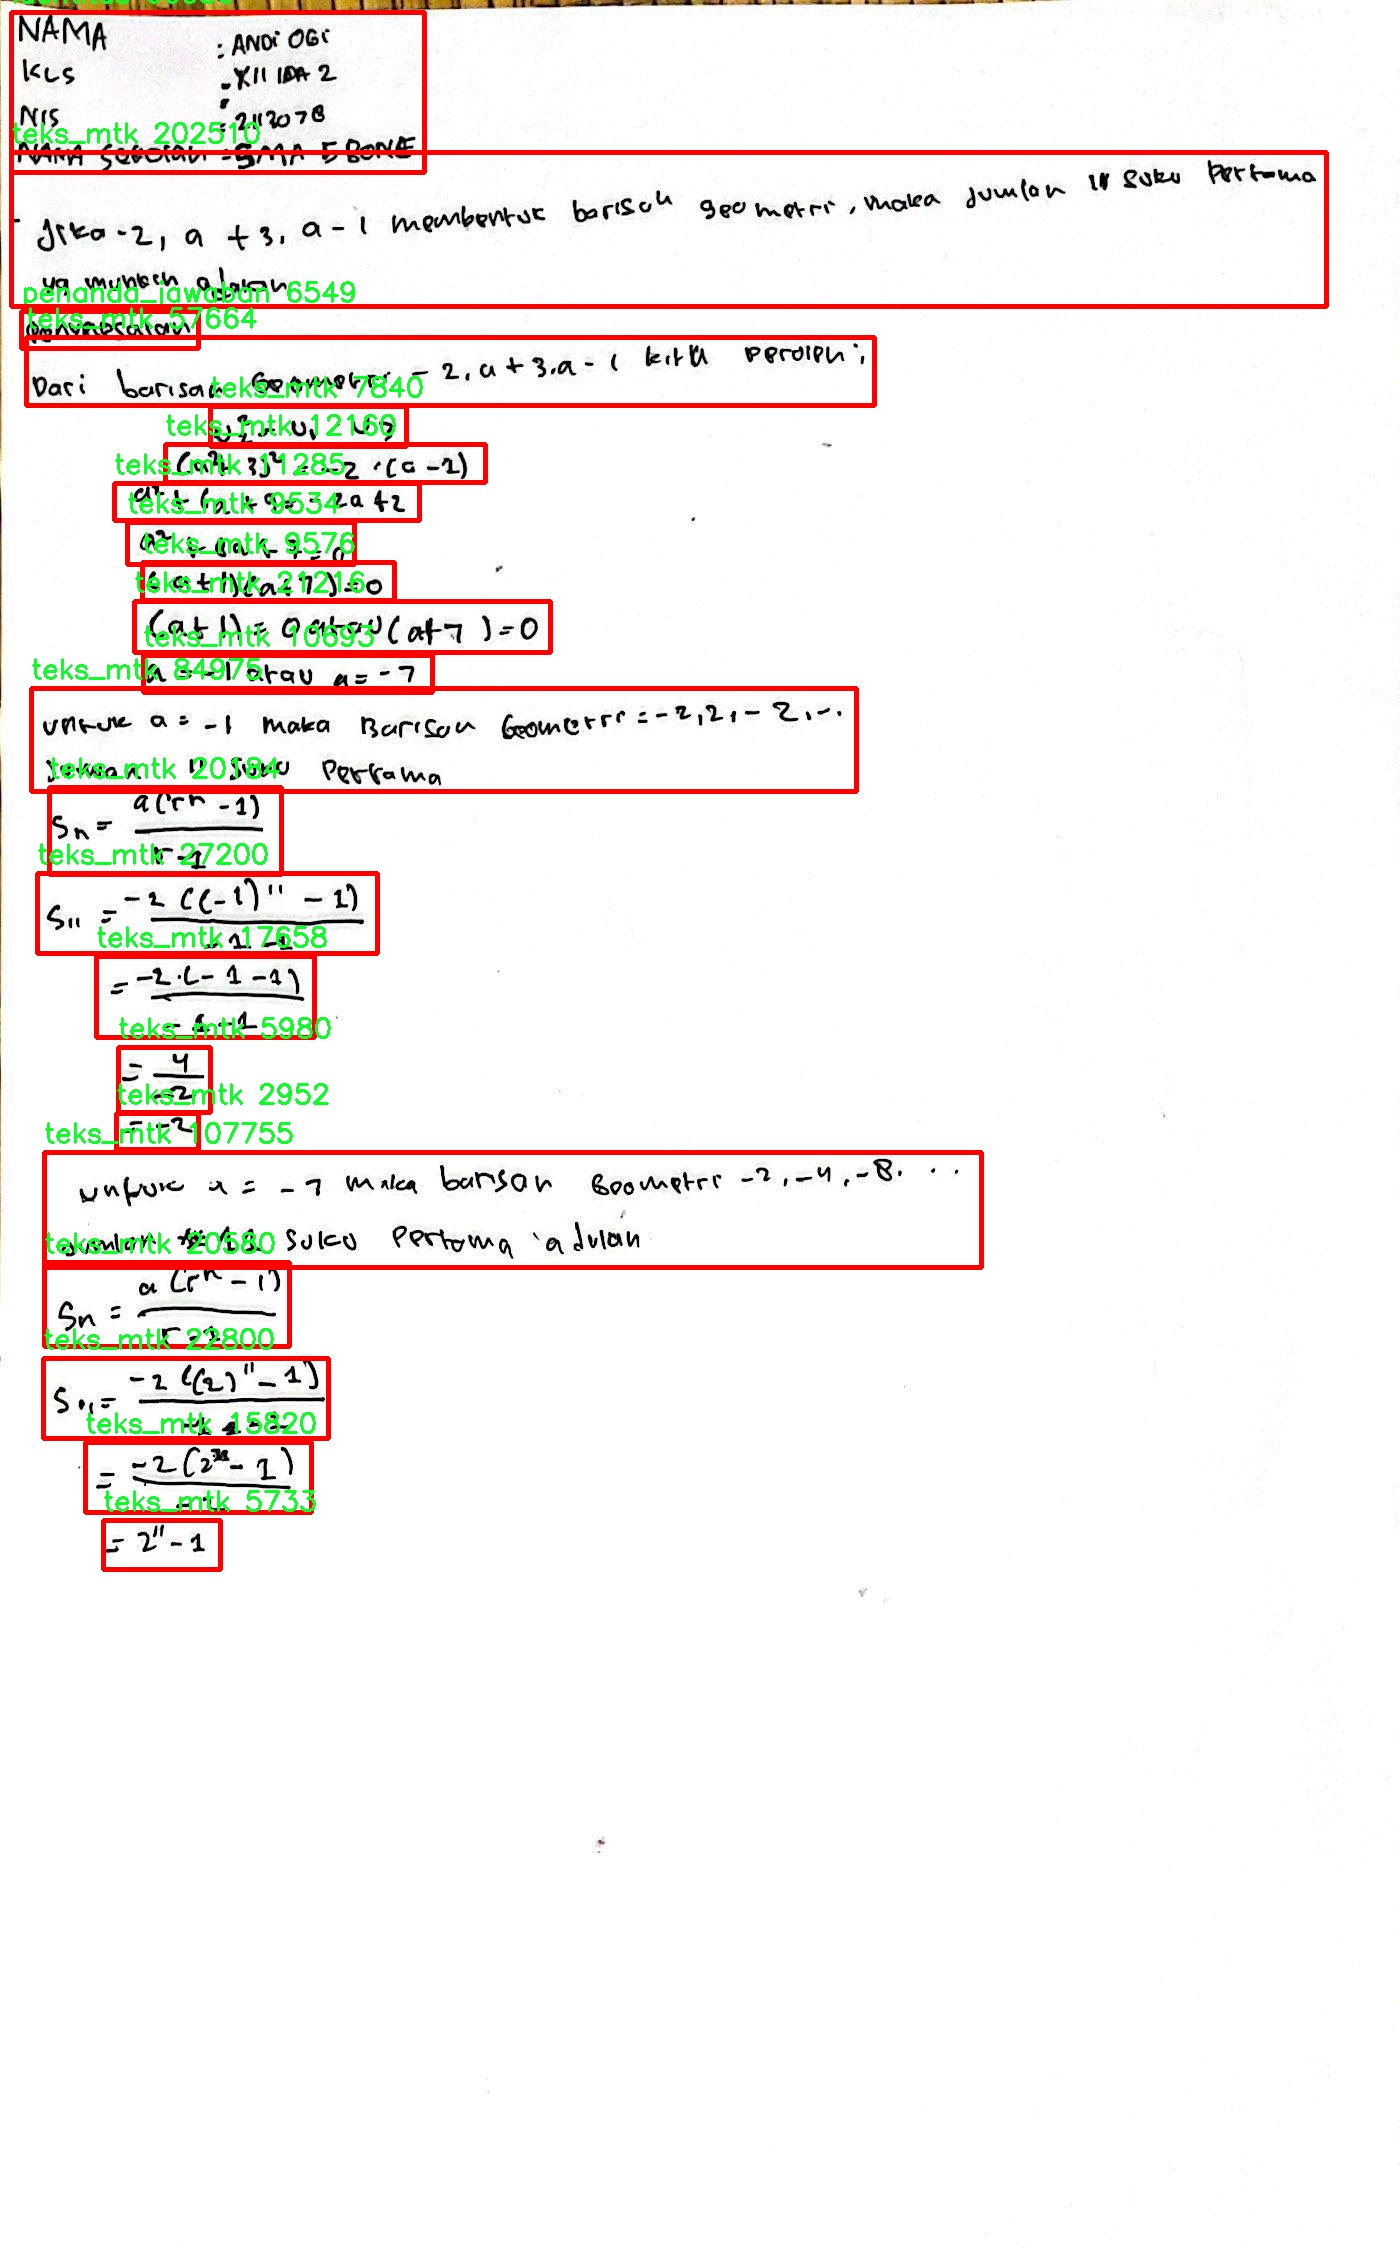 NAMA : ANDI OGI
KLS : XII IPA 2
NIS : 2112078
teks_mtk 202510
NAMA SEKOLAH : SMA 5 BONE
Jika -2, a +3, a-1 membentuk barisan geometri, maka jumlah 11 suku Pertama
yg mungkin adalah
penanda_jawaban 6549
teks_mtk 57664
Penyelesaian
Dari barisan Geometri -2, a+3, a-1 kita peroleh:
teks_mtk 7840
teks_mtk 12160
teks_mtk 11285
-2 .(a -1)
teks_mtk 9534
-2a +2
teks_mtk 9576
teks_mtk 21216
(a+1)(a+7)=0
(a+1) = 0 atau (a+7)=0
teks_mtk 10693
a = -1 atau a = -7
teks_mtk 84975
Untuk a = -1 maka Barisan Geometri = -2, 2, -2, ...
suku Pertama
teks_mtk 20184
Sn = a(r^n - 1) / r-1
teks_mtk 27200
S11 = -2 ((-1)^11 - 1) / -1 -1
teks_mtk 17658
= -2.(-1 -1) / -1-1
teks_mtk 5980
= 4 / -2
teks_mtk 2952
= -2
teks_mtk 107755
Untuk a = -7 maka barisan Geometri -2, -4, -8. ...
Jumlah 11 suku Pertama adalah
teks_mtk 20580
Sn = a (r^n - 1) / r-1
teks_mtk 22800
S11 = -2 ((2)^11 - 1)
teks_mtk 15820
= -2 (2 - 1)
teks_mtk 5733
= 2^11 - 1